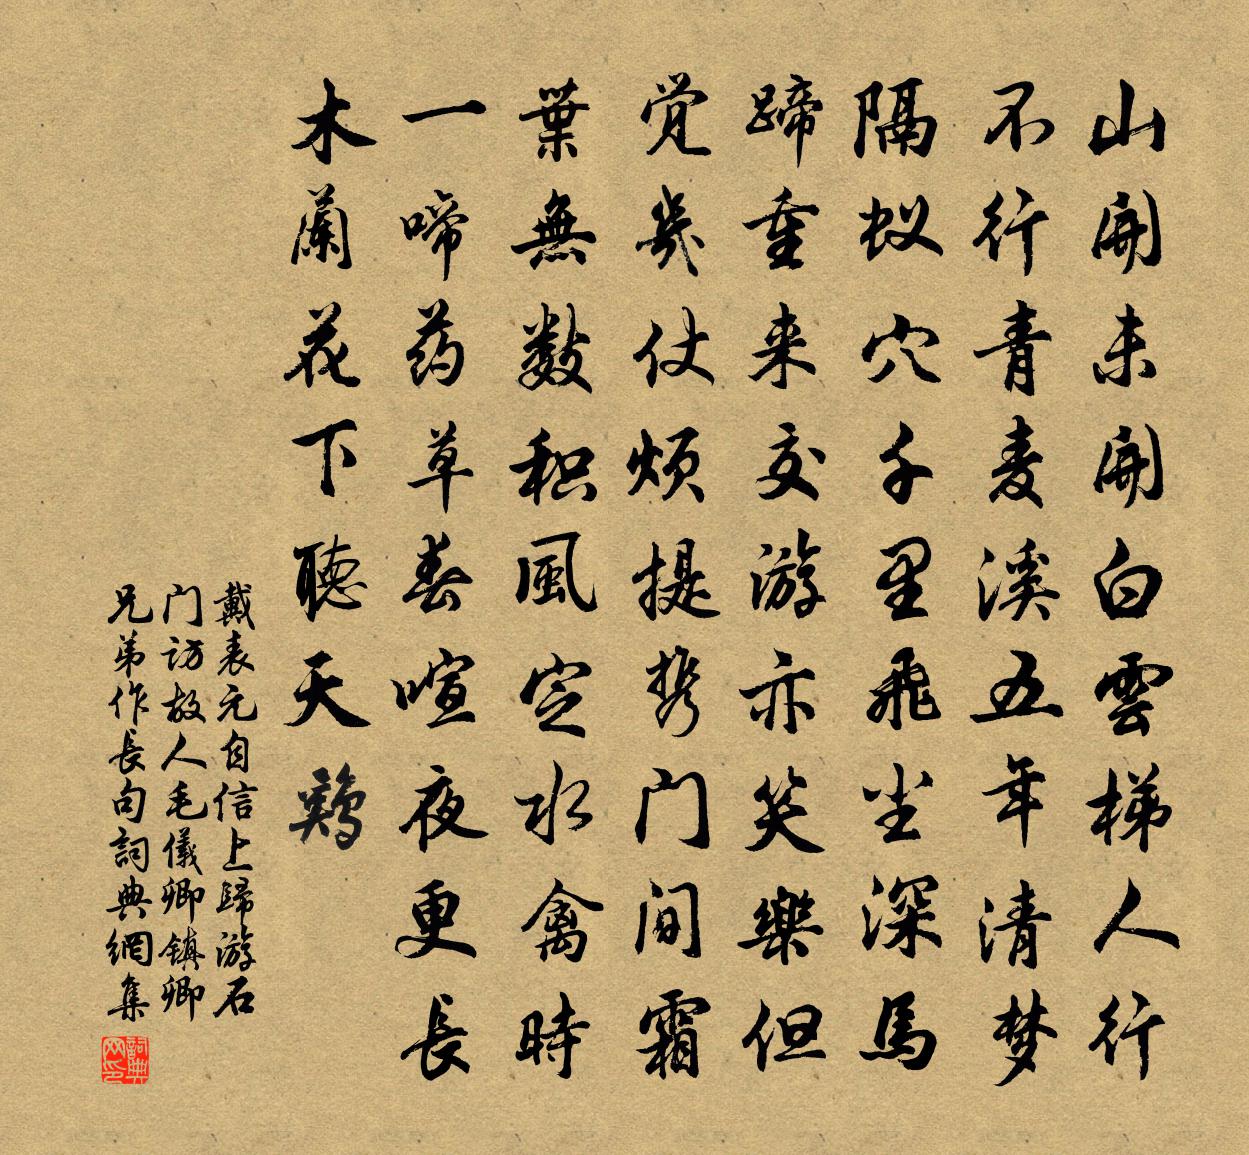 山開未開白雲梯人行
不行青麦溪五年清梦
隔蚁穴千里飛尘深馬
蹄重来交游亦笑樂但
觉幾仗烦提携门间霜
葉無数积風定水禽時
一啼药草春喧夜更長
木蘭花下聽天鷄
戴表元自信上歸游石
门访故人毛儀卿鎮卿
兄弟作長句詞典網集
詞典网印